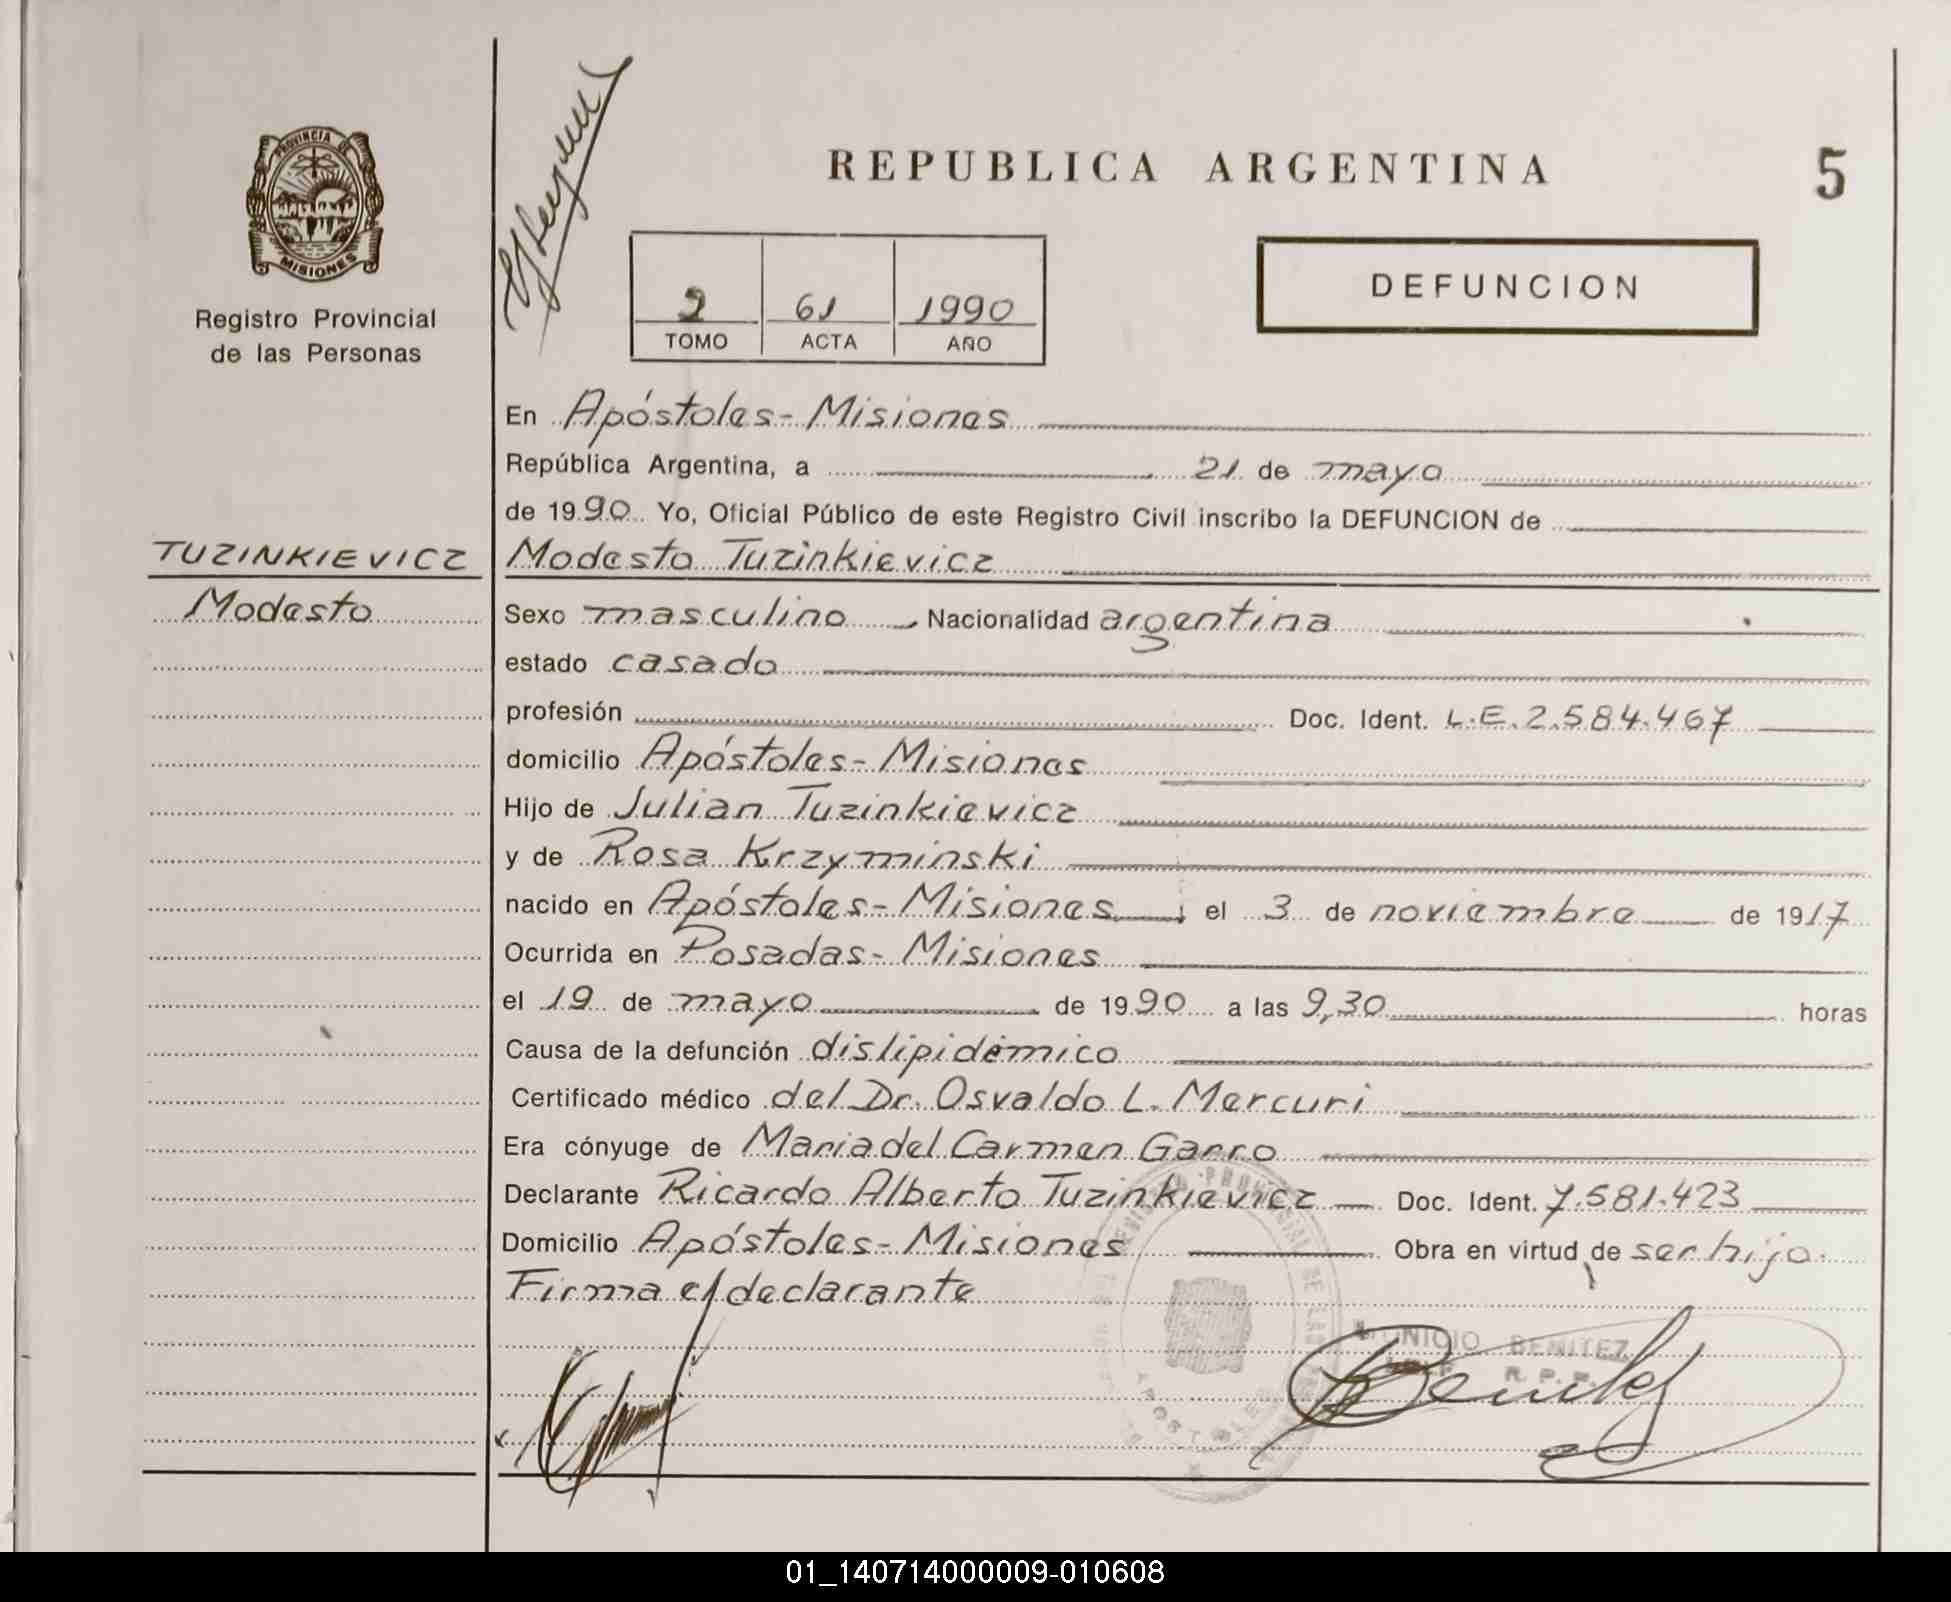 PROVINCIA DE
MISIONES
Registro Provincial
de las Personas
TUZINKIEVICZ
Modesto
REPUBLICA ARGENTINA
5
2 61 1990
TOMO ACTA AÑO
DEFUNCION
En Apóstoles-Misiones
República Argentina, a 21 de mayo
de 1990 Yo, Oficial Público de este Registro Civil inscribo la DEFUNCION de
Modesto Tuzinkievicz
Sexo masculino Nacionalidad argentina
estado casado
profesión Doc. Ident. L.E. 2.584.467
domicilio Apóstoles-Misiones
Hijo de Julian Tuzinkievicz
y de Rosa Krzyminski
nacido en Apóstoles-Misiones el 3 de noviembre de 1917
Ocurrida en Posadas-Misiones
el 19 de mayo de 1990 a las 9,30 horas
Causa de la defunción dislipidémico
Certificado médico del Dr. Osvaldo L. Mercuri
Era cónyuge de Maria del Carmen Garro
Declarante Ricardo Alberto Tuzinkievicz Doc. Ident. 7.581.423
Domicilio Apóstoles-Misiones Obra en virtud de ser hijo.
Firma el declarante
BENITEZ
R. P. P.
01_140714000009-010608